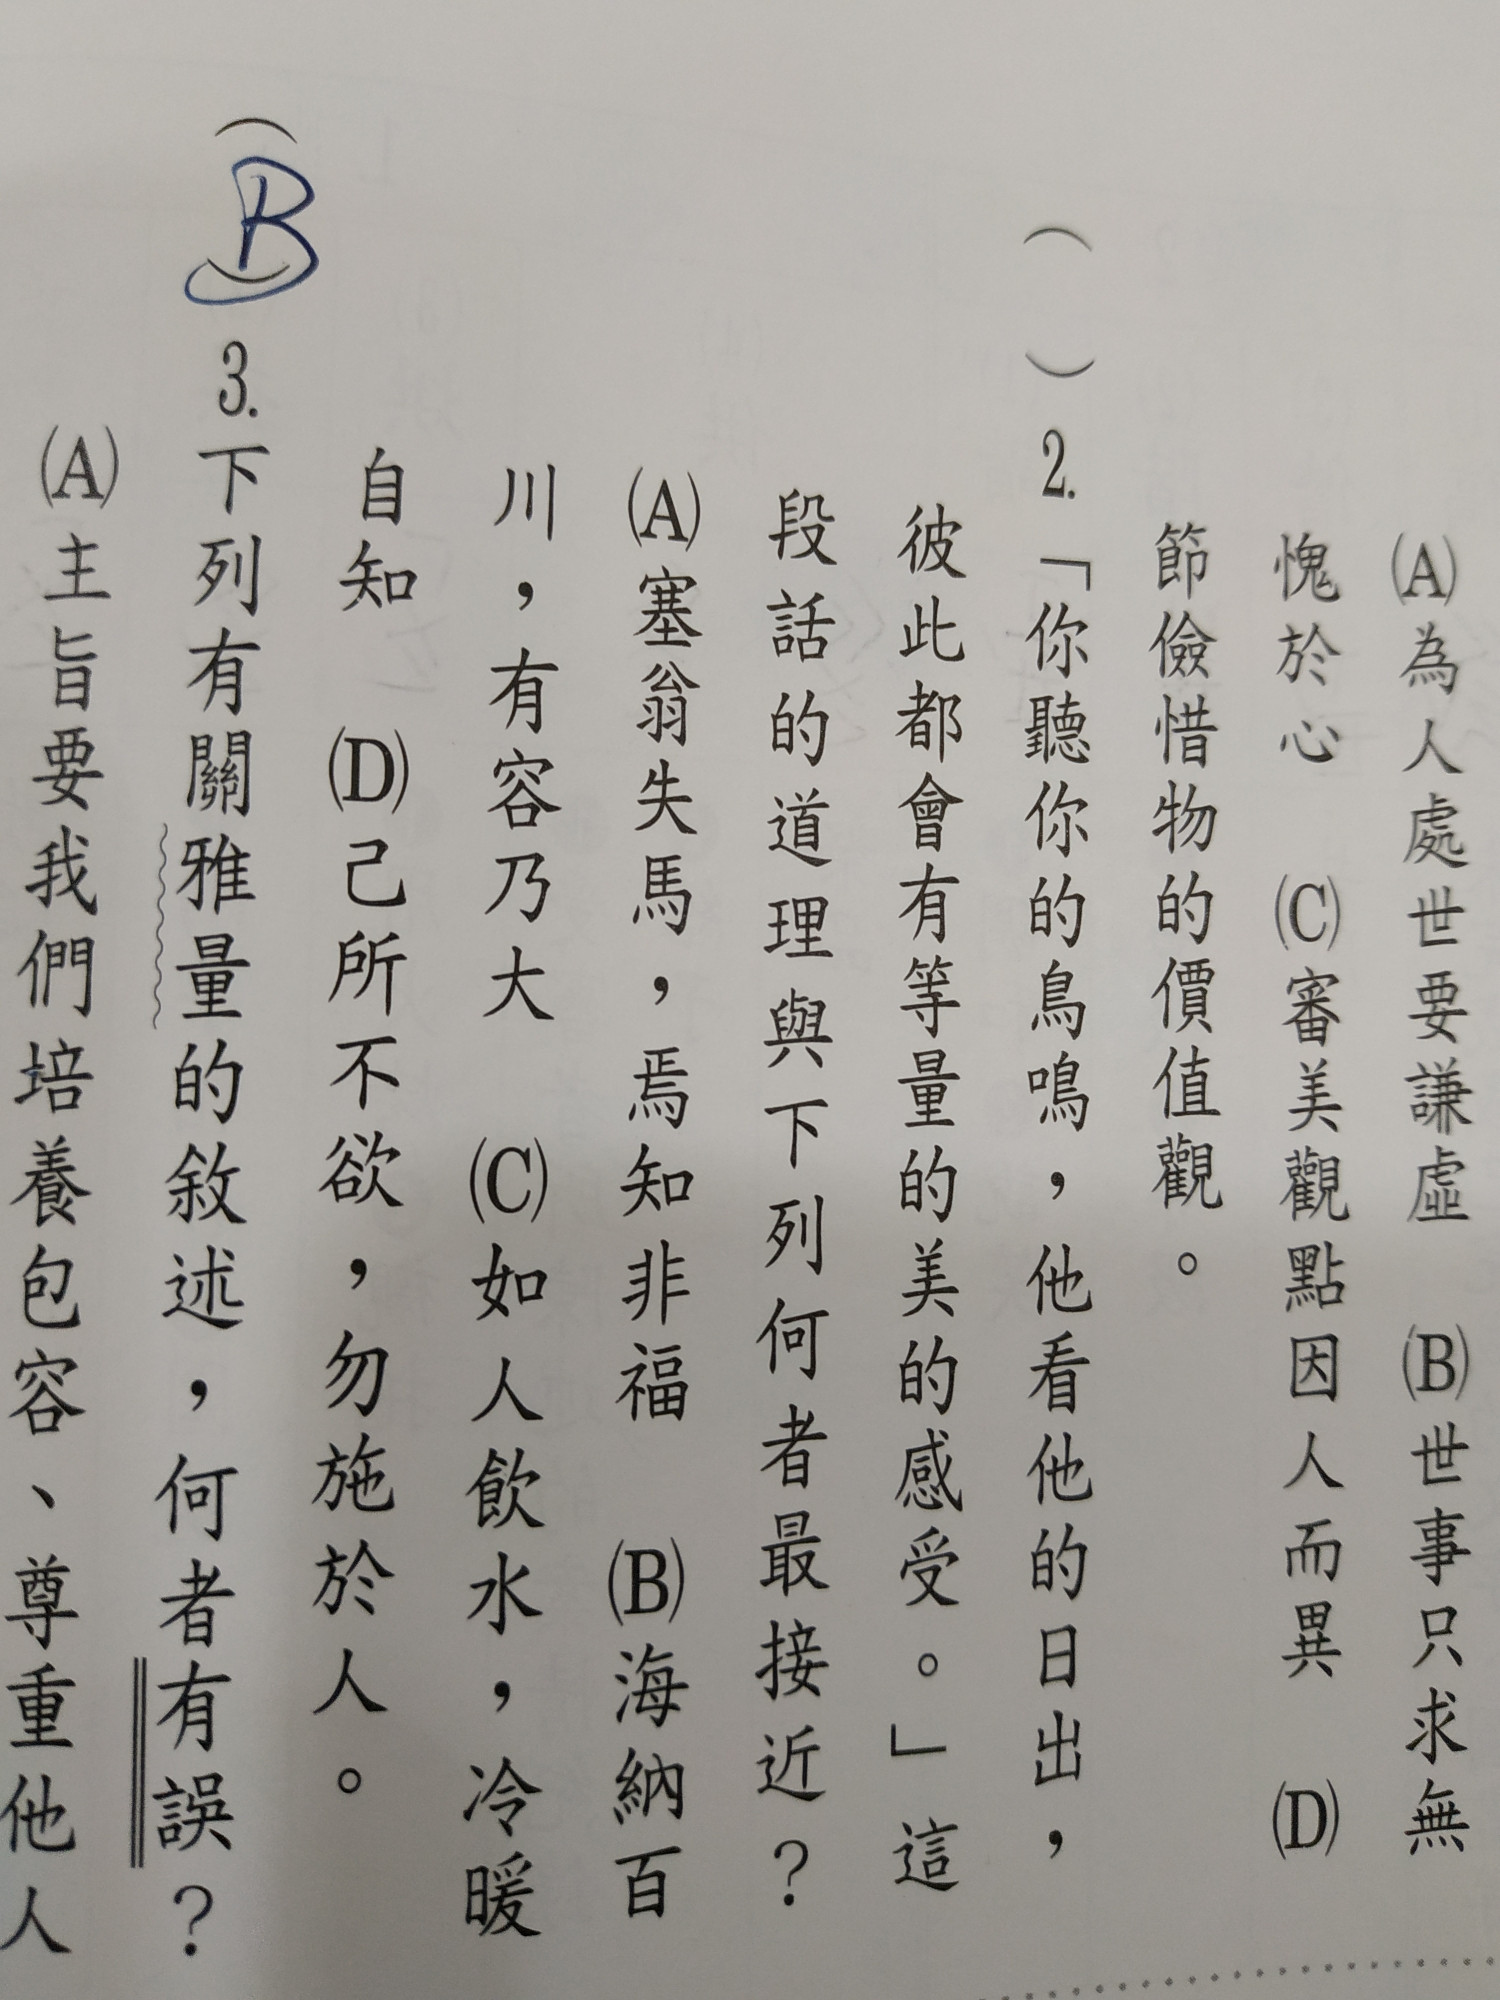 (A)為人處世要謙虛 (B)世事只求無
愧於心 (C)審美觀點因人而異 (D)
節儉惜物的價值觀。
( )2.「你聽你的鳥鳴，他看他的日出，
彼此都會有等量的美的感受。」這
段話的道理與下列何者最接近？
(A)塞翁失馬，焉知非福 (B)海納百
川，有容乃大 (C)如人飲水，冷暖
自知 (D)己所不欲，勿施於人。
(B)3.下列有關雅量的敘述，何者有誤？
(A)主旨要我們培養包容、尊重他人